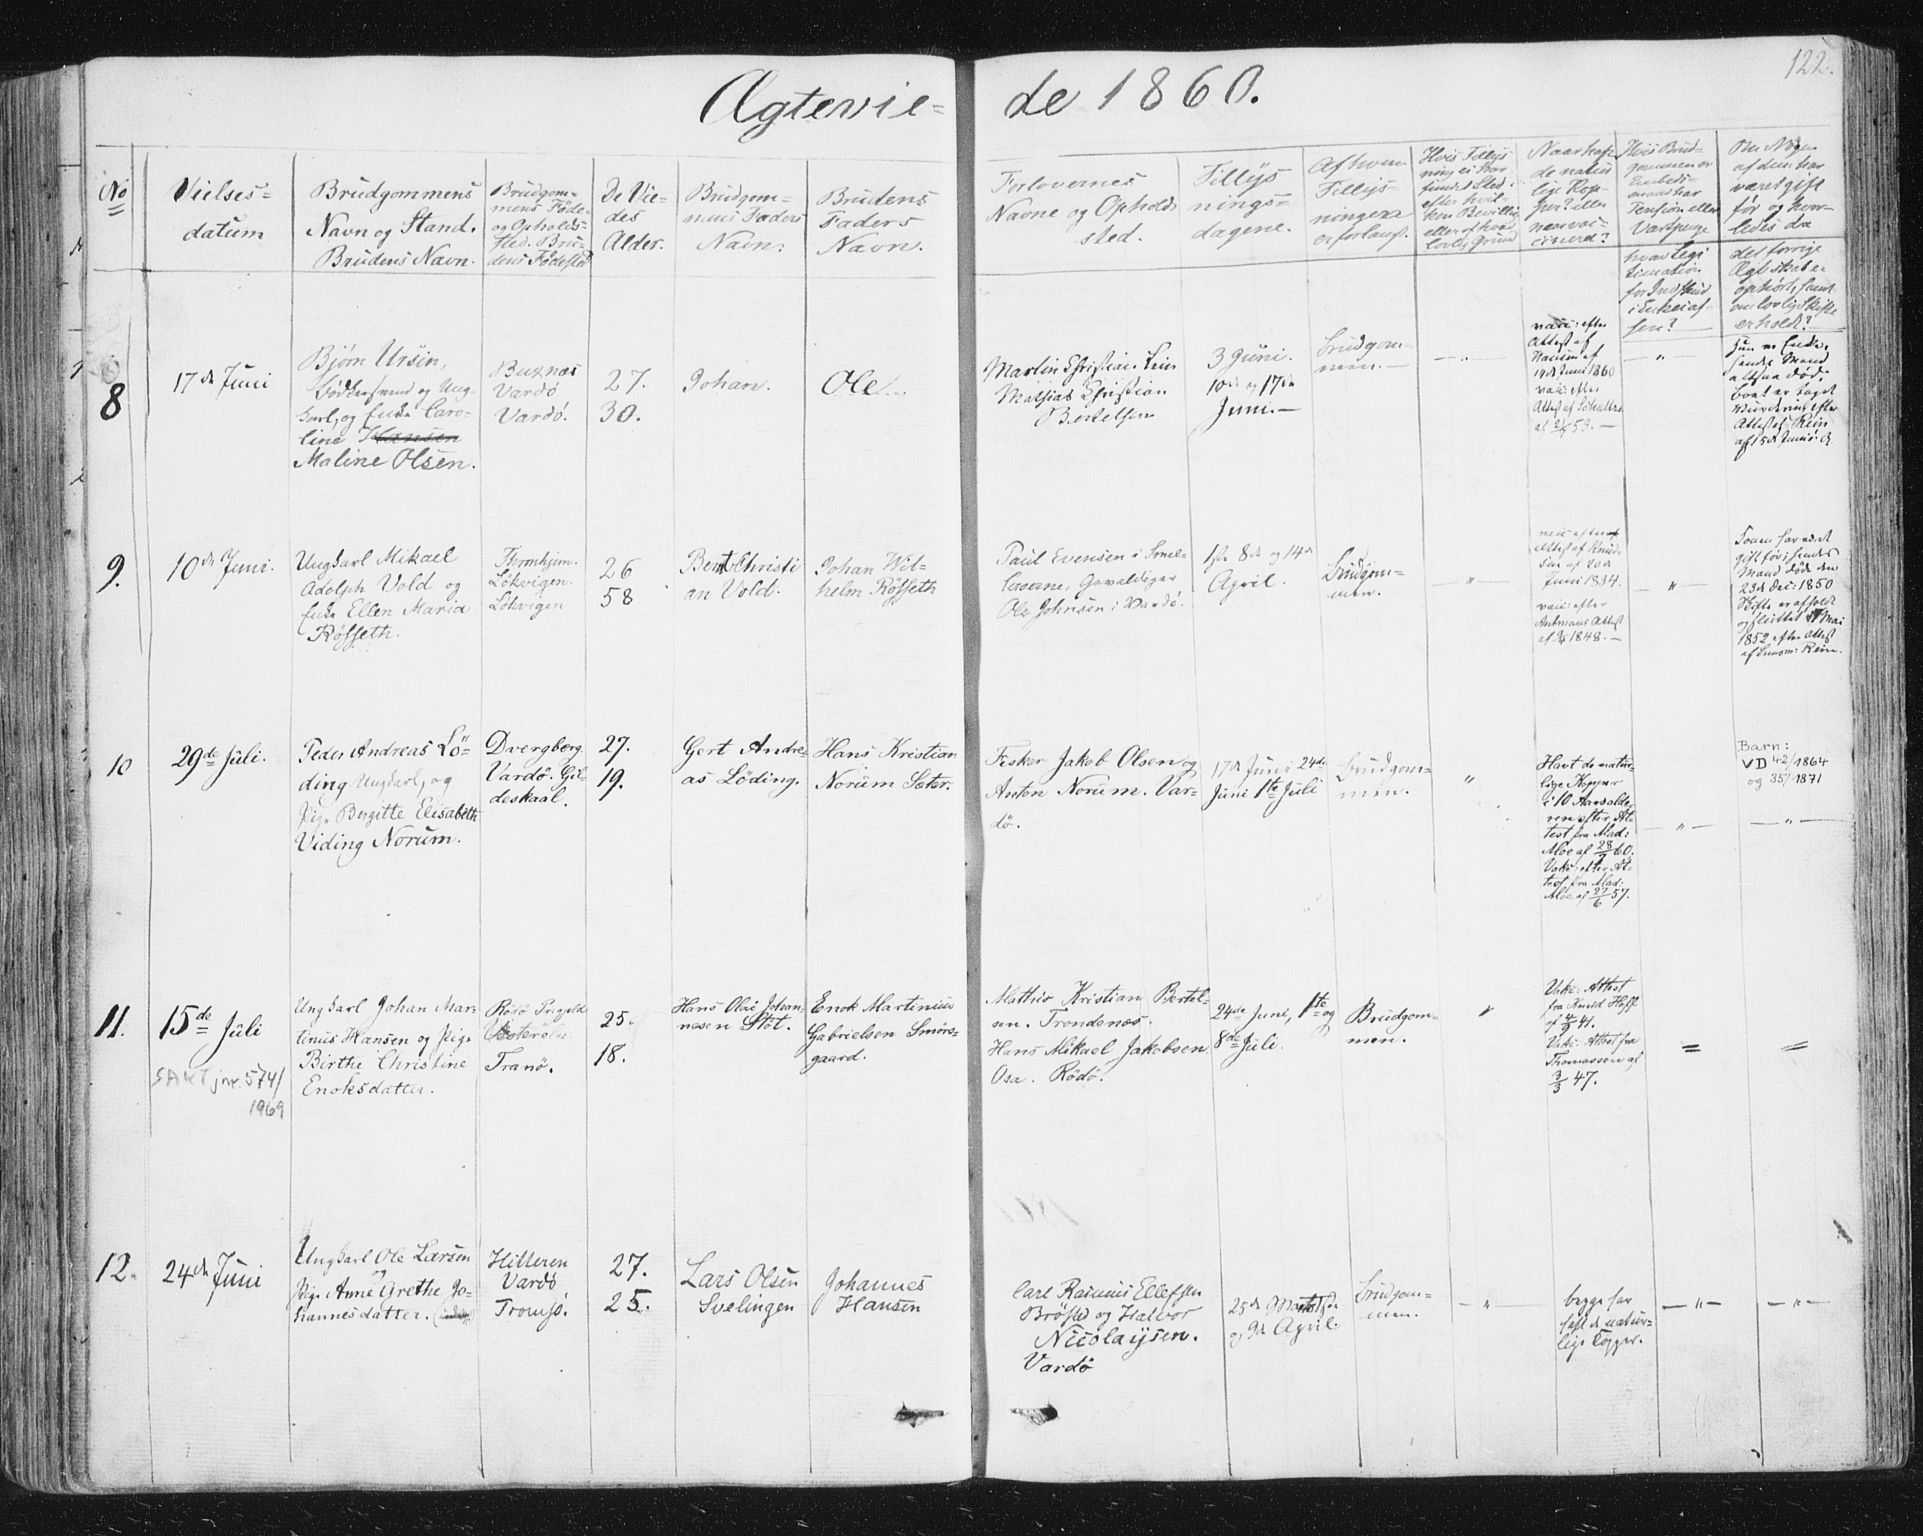 Ægtevie=
de 1860.
122.
No
Vielses=
datum
Brudgommens
Navn og Stand.
Brudens Navn.
Brudgom=
mens Føde=
og Opholds=
sted. Bru=
dens Fødested
De Vie=
des
Alder.
Brudgom=
mens Faders
Navn.
Brudens
Faders
Navn.
Forlovernes
Navne og Opholds
sted.
Tillys
nings=
dagene.
Af hvem
Tillys=
ningerne
er forlangt.
Hvis Tillys
ning ei har
fundet Sted,
efter hvil=
ken Bevilling
eller af hvad
lovlig Grund
Naar haft
de natur
lige Kop=
per? eller
naar vac=
cineret?
Hvis Brud=
gommen er
Embeds=
mand har
Pension eller
hvad Legi
timation
for Indskud
i Enkecas=
sen?
Om Nogen
af dem har
været gift
før og hvor=
ledes da
det forrige
Ægteskab er
ophørt, samt
om lovlig Skifte
erholdt?
8
17de Juni
Bjørn Ursin,
og Ung=
karl, og Enke Caro=
line Hansen
Maline Olsen.
Buxnæs
Vardö
Vardö.
27.
30.
Johan.
Ole.
Martin Christian
Mathias Christian
Bertelsen
3 Juni.
10de og 17de
Juni.—
Brudgom=
men.—
— " —
vacc: efter
Attest af
af
14de Juni 1860
vacc: efter
Attest af
53.—
— " —
Hun er Enke,
hendes Mand
død;
Boet er taget
efter
Attest af Rein
af 15de Juni
9.
10de Juni.
Ungkarl Mikael
Adolph Vold og
Enke Ellen Maria
Röfseth.
Thronhjem.
Lökvigen.
Lökvigen
26
58
Bent Christi
an Vold.
Johan Wil=
helm Röfseth
Paul Evensen i
Ole Johnsen i Vardö.
1ste 8de og 14de
April.
Brudgom=
men.
— " —
Attest af
af 20de
Juni 1834.
vacc: efter
Attest
af 1848.—
— " —
Konen har været
gift før; hendes
Mand døde den
23de Dec: 1850
Skifte er afholdt
og sluttet Mai
1852 efter Attest
af Rein.
10
29de Juli.
Peder Andreas Lö=
ding Ungkarl, og
Pige Bergitte Elisabeth
Viding Norum.
Dvergberg.
Vardö. Gil
deskaal.
27.
19.
Gert Andre=
as Löding.
Hans Kristian
Norum Sæter.
Fisker Jakob Olsen og
Anton Norum. Var=
dö.
17de Juni 24de
Juni 1ste Juli
Brudgom=
men.
"
Havt de natur=
lige Kopper
i 10 Aarsalde=
ren efter At=
test fra Mad:
Moe af 28/7 60.
Vake: efter At=
test fra Mad.
Moe af 27/6 57.
— " —
Barn:
VD 42/1864
og 35/1871
— " —
11.
15de Juli
SAKT jnr. 574/
1969
Ungkarl Johan Mar=
tinus Hansen og Pige
Birthe Christine
Enoksdatter.
Rödö Prgjeld
Tranö.
25.
18.
Hans Olai Johan=
nesen Stöt.
Enok Martinius
Gabrielsen Smörs=
gaard.
Mathis Kristian Bertel=
sen. Trondenæs.
Hans Mikael Jakobsen
Osa. Rödö.
24de Juni, 1ste og
8de Juli.
Brudgom=
men.
"
Vake: Attest
fra Knud Hoff
af 41.
Vake: Attest fra
Thomassen af
3/3 47.
=
=
12.
24de Juni
Ungkarl Ole Larsen
og
Pige Anne Grethe Jo=
hannesdatter.
Hitteren
Vardö
Tromsö.
27.
25.
Lars Olsen
Svelingen
Johannes
Hansen
Carl Rasmus Ellefsen
Bröstad og Halvor
Nicolaysen.
Vardö
25de Marts
og 9de April.
Brudgom=
men.
— " —
begge har
haft de natur=
lige Kopper.
— " —
— " —